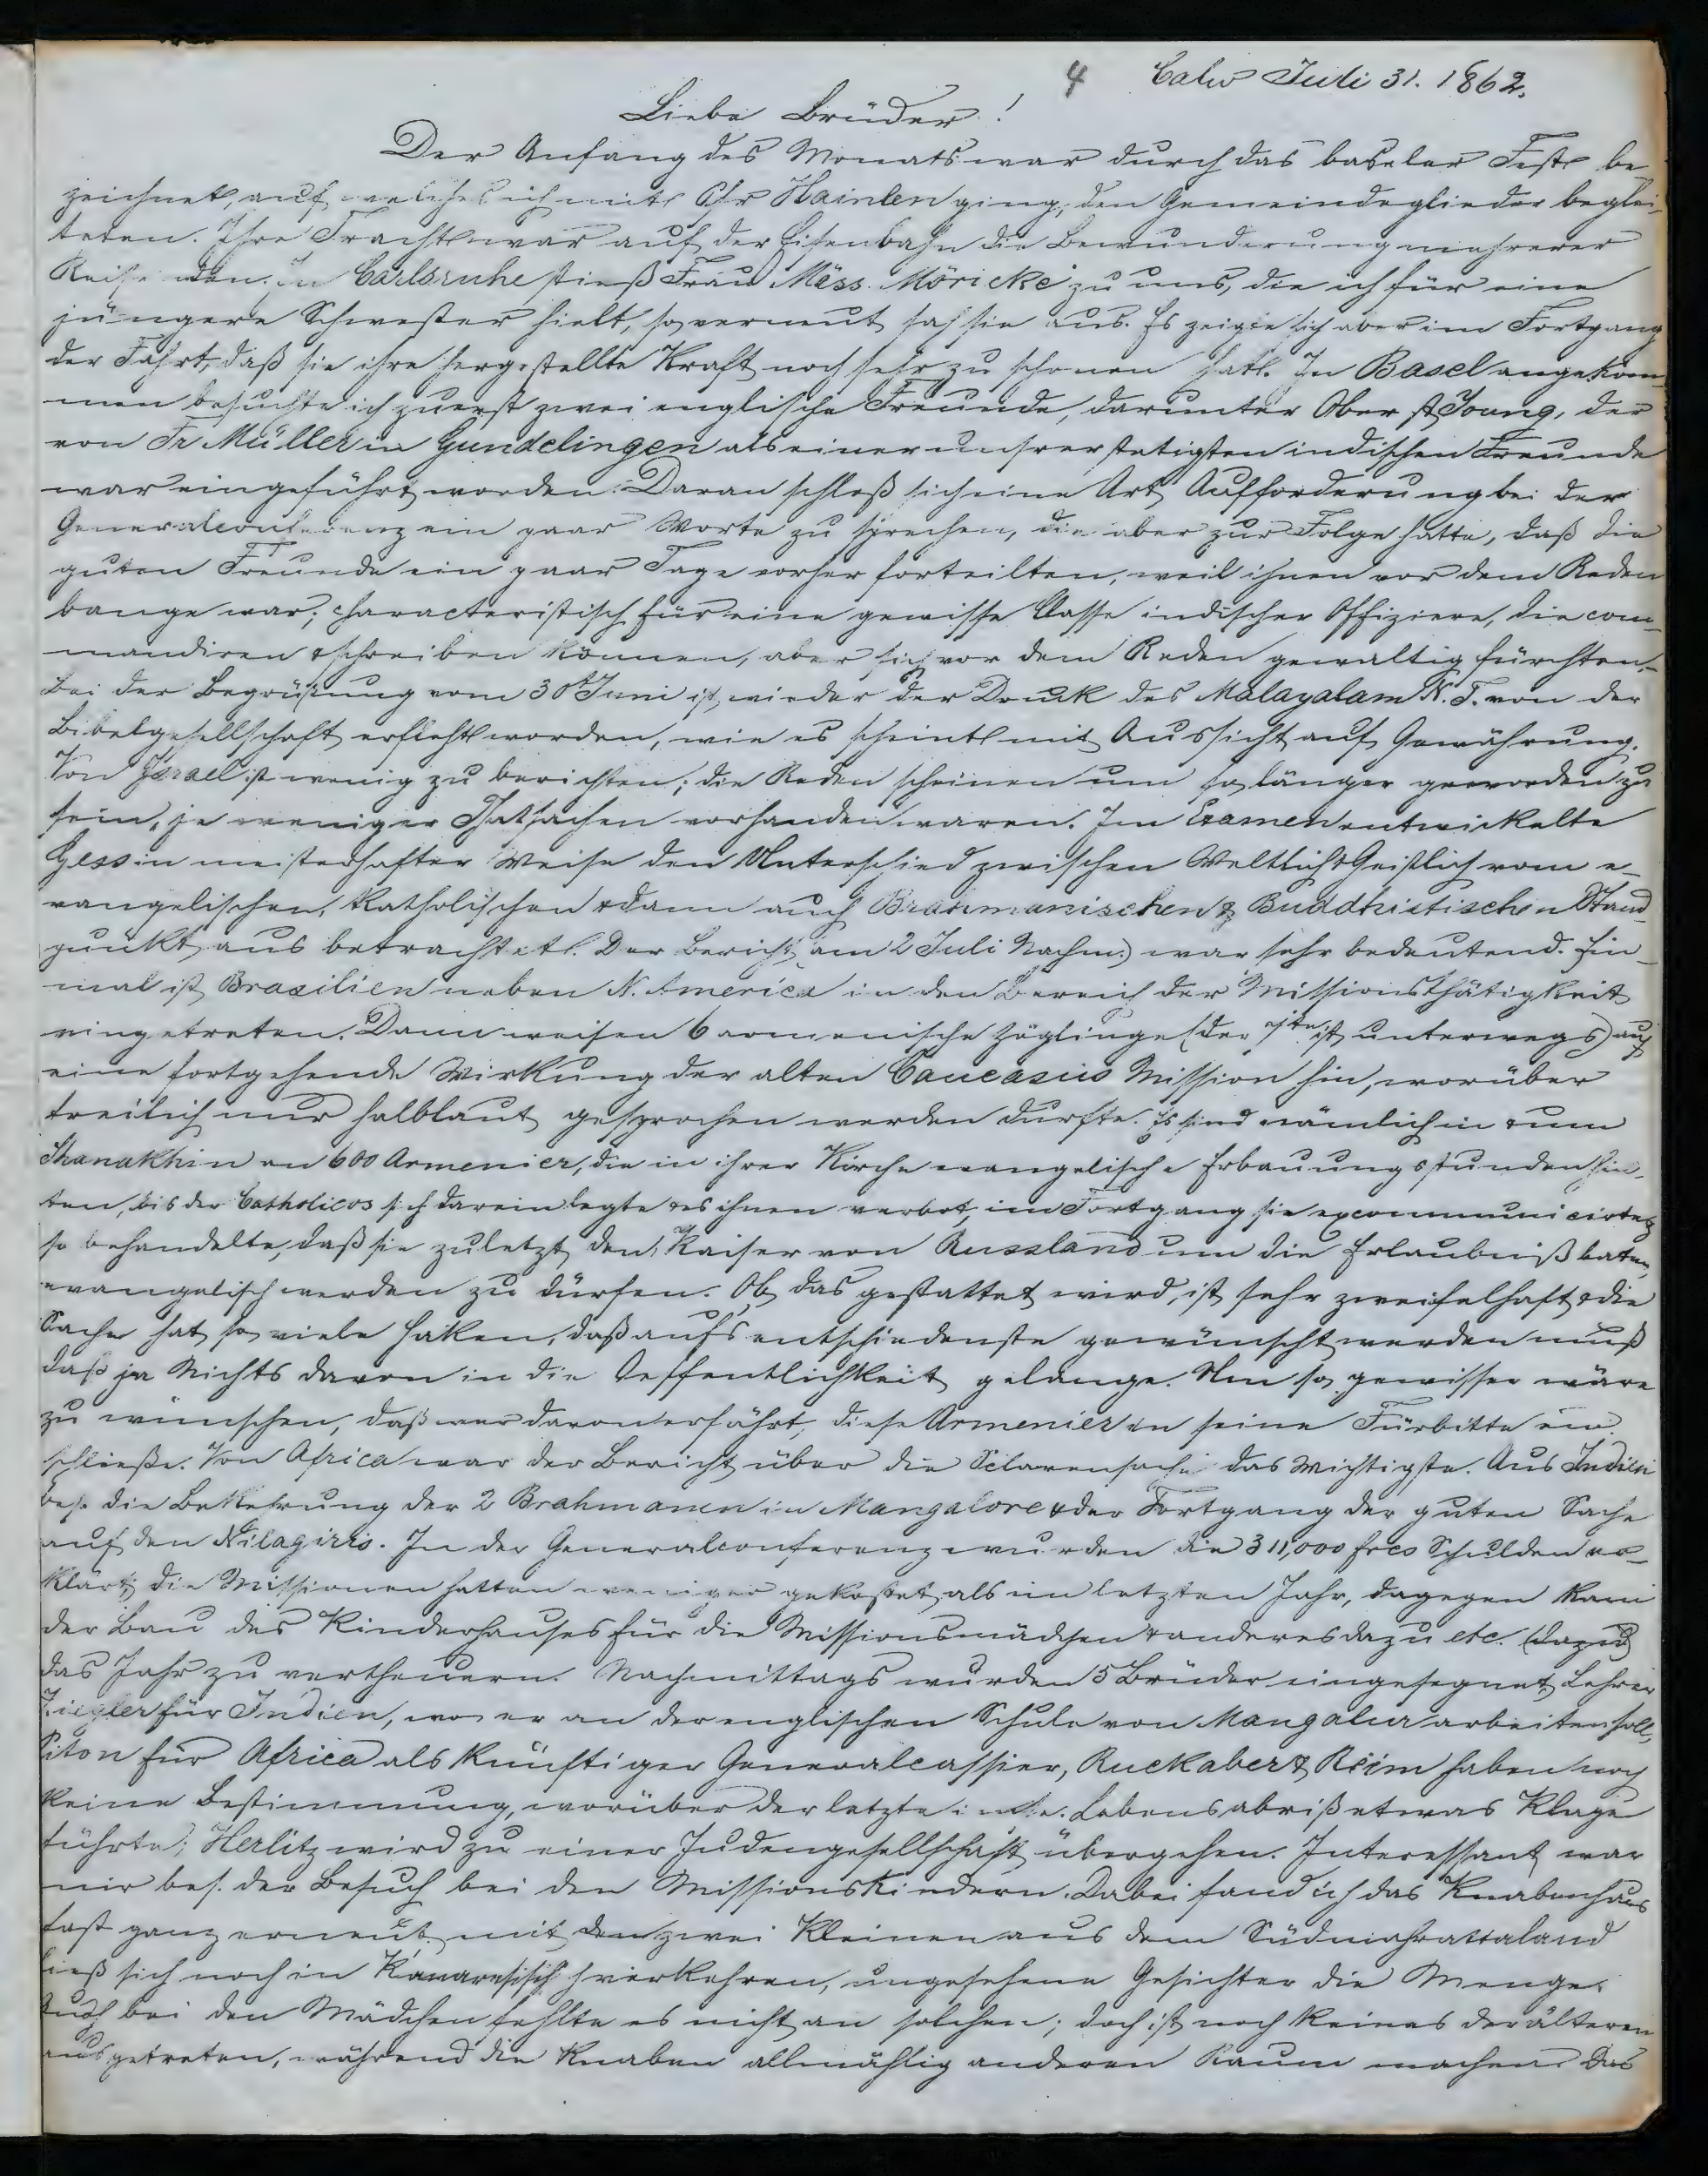 4 Calw Juli 31. 1862.
Liebe Brüder!
Der Anfang des Monats war durch das baseler Fest be-
zeichnet, auf welches ich mit Chr Hainlen ging, den Gemeindeglieder beglei-
teten. Ihre Tracht war auf der Eisenbahn die Bewunderung mehrerer
Reisenden. In Carlsruhe stieß Frau Miss. Möricke zu uns, die ich für eine
jüngere Schwester hielt, so erneut sah sie aus. Es zeigte sich aber im Fortgang
der Fahrt, daß sie ihre hergestellte Kraft noch sehr zu schonen hat. In Basel angekom-
men besuchte ich zuerst zwei englische Freunde, darunter Oberst Young, der
von Fr Müller in Gundelingen als einer unsrer stetigsten indischen Freunde
war eingeführt worden. Daran schloß sich eine Art Aufforderung bei der
Generalconferenz ein paar Worte zu sprechen, die aber zur Folge hatte, daß die
guten Freunde ein paar Tage vorher forteilten, weil ihnen vor dem Reden
bange war; characteristisch für eine gewisse Classe indischer Offiziere, die com-
mandiren & schreiben können, aber sich vor dem Reden gewaltig fürchten.-
Bei der Begrüßung vom 30t Juni ist wieder der Druck des Malayalam N. T. von der
Bibelgesellschaft erfleht worden, wie es scheint mit Aussicht auf Gewährung.
Von Israel ist wenig zu berichten; die Reden scheinen um so länger geworden zu
sein, je weniger Thatsachen vorhanden waren. Im Examen entwickelte
Gess in meisterhafter Weise den Unterschied zwischen Weltlich & Geistlich vom e-
vangelischen, katholischen & dann auch Brahmanischen & Buddhistischen Stand-
punkt aus betrachtet. Der Bericht (am 2 Juli Nachm.) war sehr bedeutend. Ein-
mal ist Brasilien neben N. America in den Bereich der Missionsthätigkeit
eingetreten. Dann weisen 6 armenische Zöglinge (der 7te ist unterwegs) auf
eine fortgehende Wirkung der alten Caucasus Mission hin, worüber
freilich nur halblaut gesprochen werden durfte. Es sind nämlich in & um
Shanakhin an 600 Armenier, die in ihrer Kirche evangelische Erbauungsstunden hiel-
ten, bis der Catholicos sich darein legte & es ihnen verbot, im Fortgang sie excommunicirte &
so behandelte, daß sie zuletzt den Kaiser von Russland um die Erlaubniß baten,
evangelisch werden zu dürfen. Ob das gestattet wird, ist sehr zweifelhaft & die
Sache hat so viele Haken, daß aufs entschiedenste gewünscht werden muß
daß ja Nichts davon in die Oeffentlichkeit gelange. Um so gewisser wäre
zu wünschen, daß wer davon erfährt, diese Armenier in seine Fürbitte ein-
schließe. Von Africa war der Bericht über die Sclavensache das Wichtigste. Aus Indien
bes. die Bekehrung der 2 Brahmanen in Mangalore & der Fortgang der guten Sache
auf den Nilagiris. In der Generalconferenz wurden die 311,000 frcs Schulden er-
klärt; die Missionen hatten weniger gekostet als im letzten Jahr, dagegen kam
der Bau des Kinderhauses für die Missionsmädchen & anderes dazu etc. (dazu)
das Jahr zu vertheuern. Nachmittags wurden 5 Brüder eingesegnet, Lehrer
Ziegler für Indien, wo er an der englischen Schule von Mangalur arbeiten soll,
Piton für Africa als künftiger Generalcassier, Ruckaber & Reim haben noch
keine Bestimmung, worüber der letzte im Lebensabriß etwas Klage
führte; Herlitz wird zu einer Judengesellschaft übergehen. Interessant war
mir bes. der Besuch bei den Missionskindern. Dabei fand ich das Knabenhaus
fast ganz erneut, mit den zwei Kleinen aus dem Südmahrattaland
ließ sich noch in Kanaresisch verkehren, ungesehene Gesichter die Menge.
Auch bei den Mädchen fehlte es nicht an solchen; doch ist noch keines der älteren
ausgetreten, während die Knaben allmählig anderen Raum machen. Das